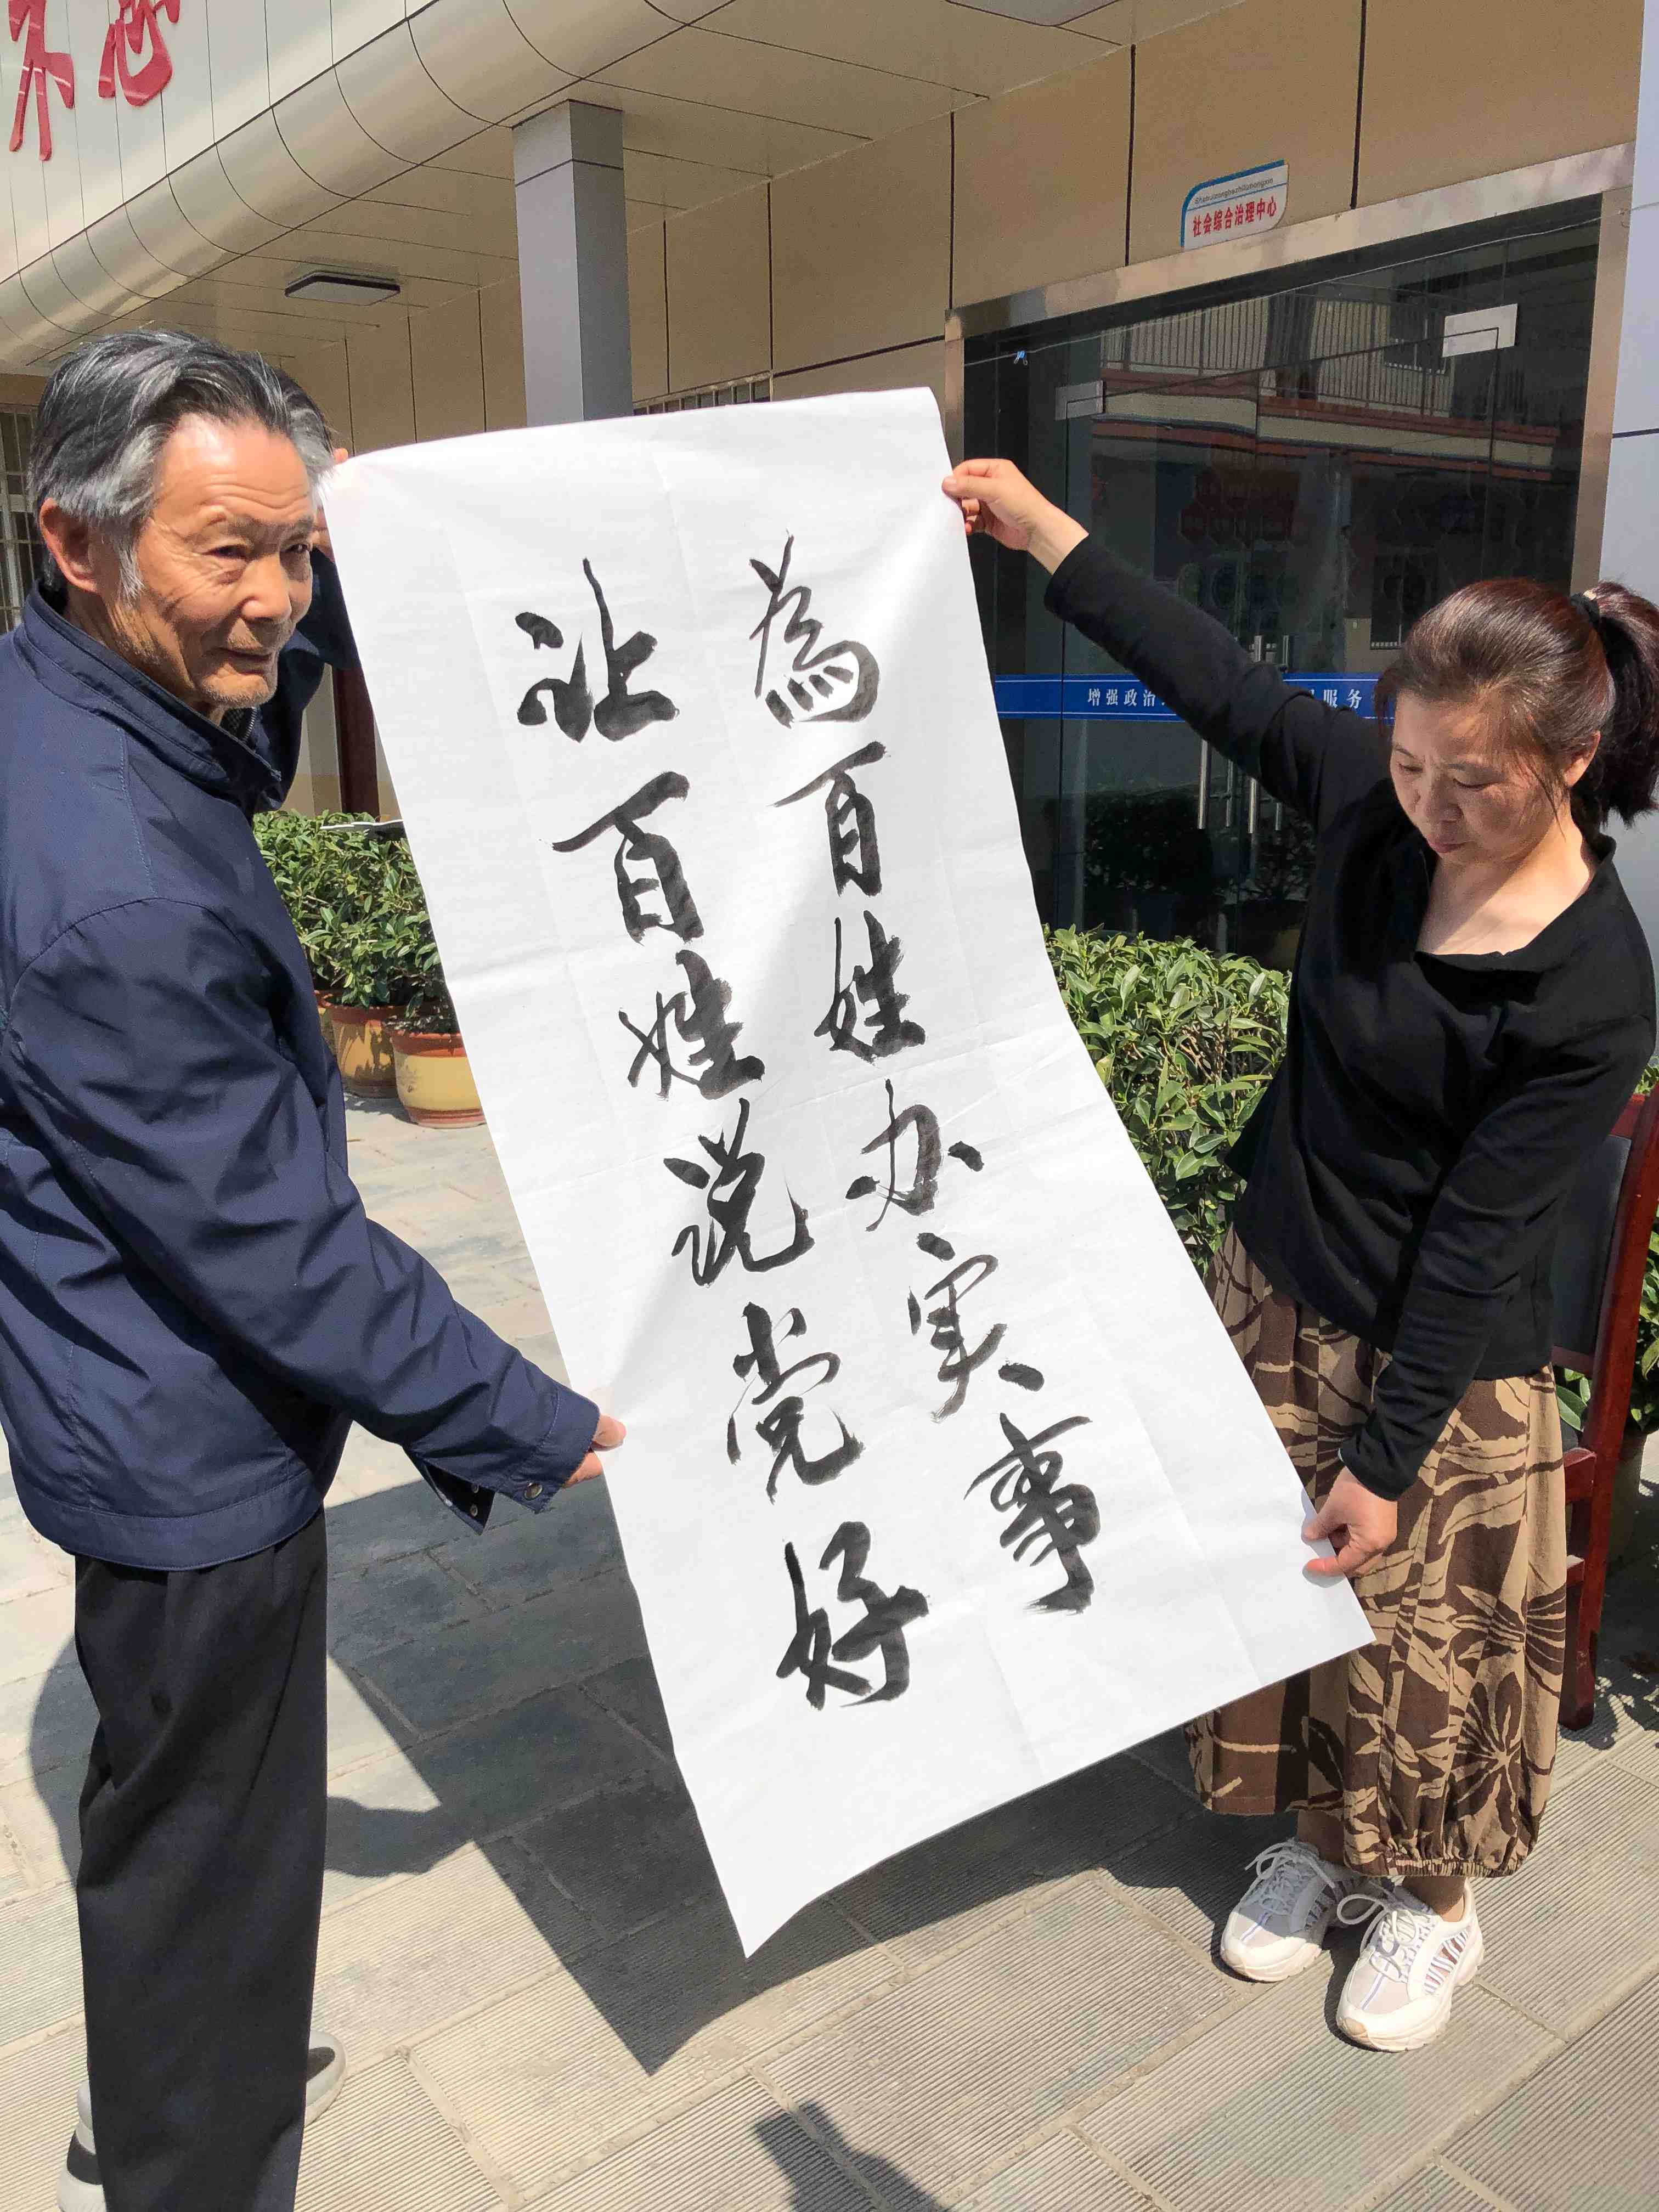 不忘
Shehuizonghezhilizhongxin
社会综合治理中心
增强政治
服务
為百姓办实事
让百姓说党好